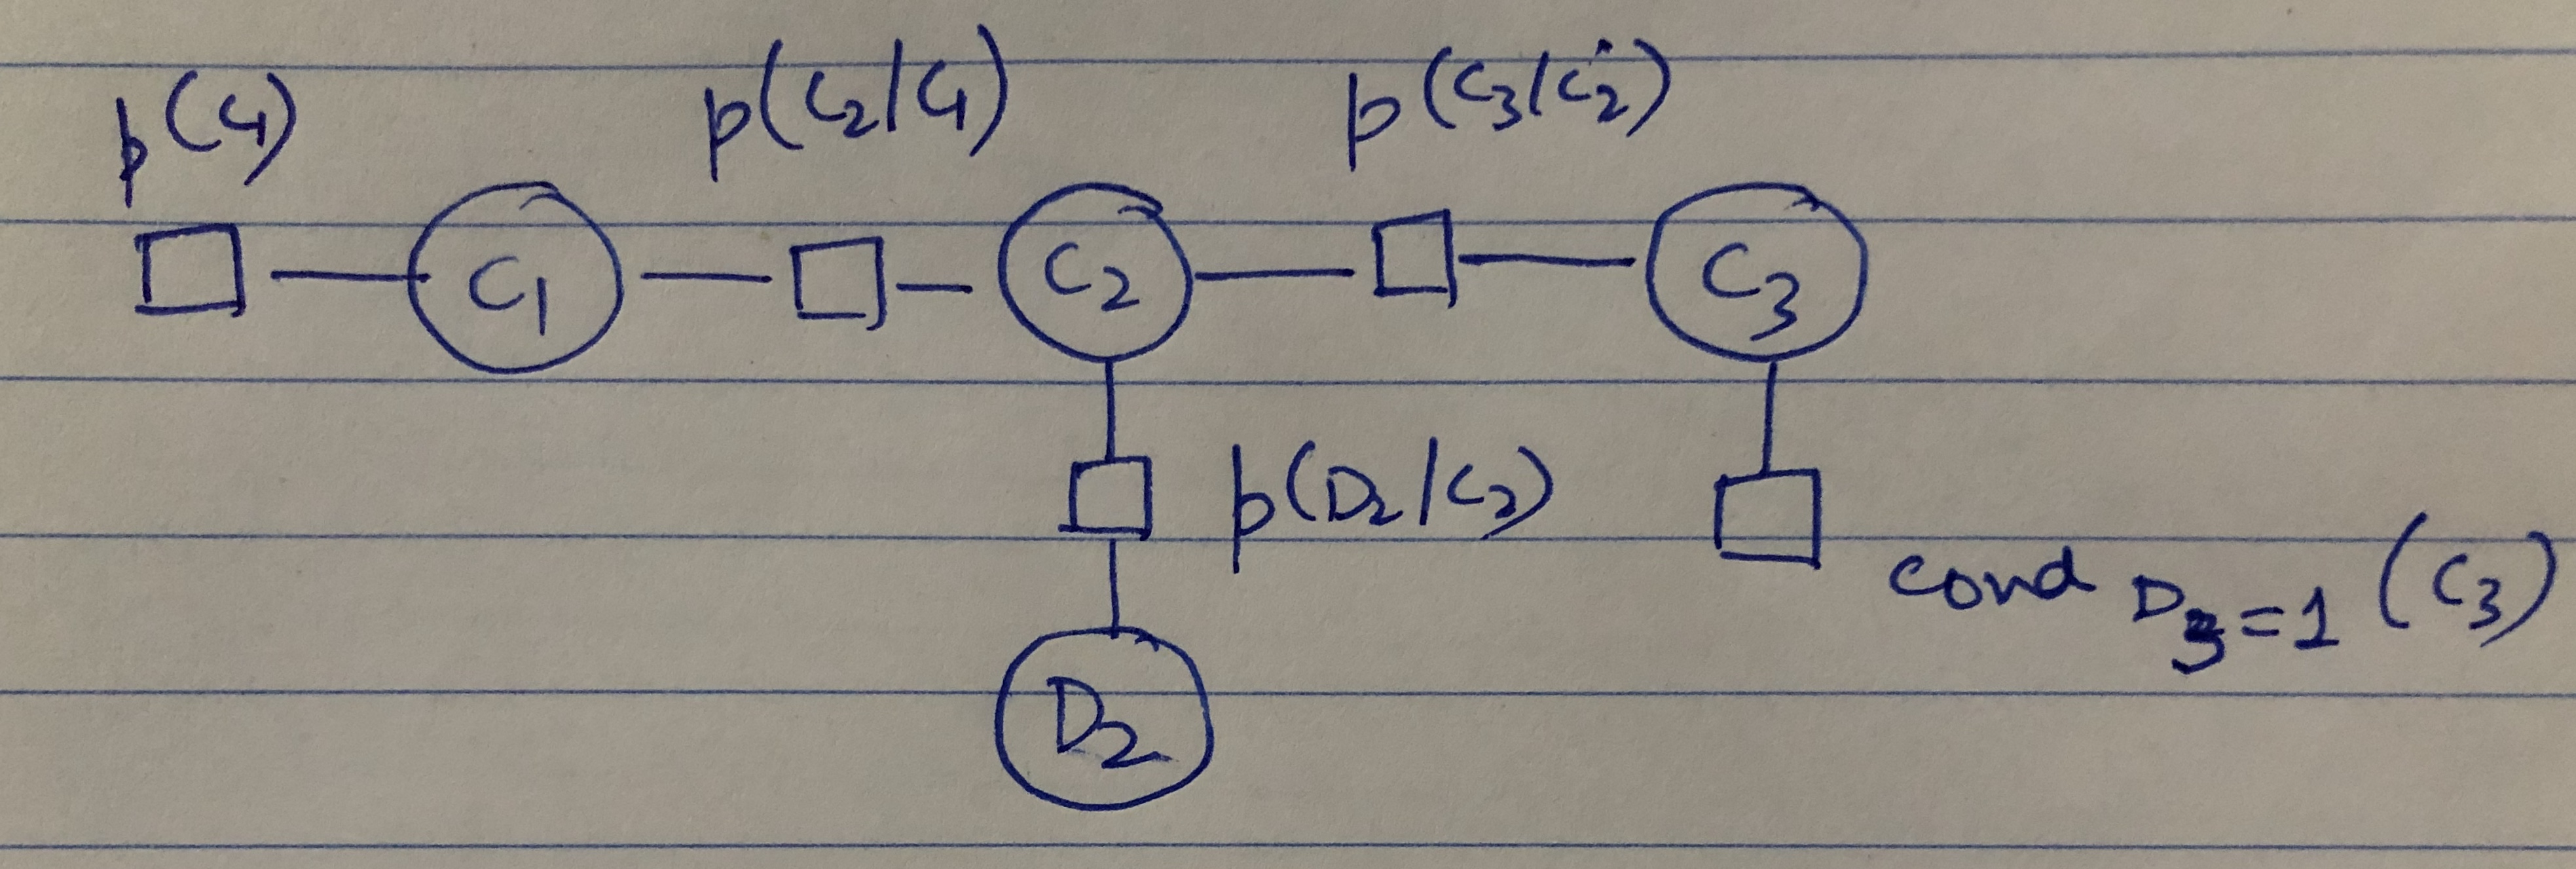 p(C1) p(C2/C1) p(C3/C2)
C1 C2 C3
p(D2/C2)
cond D3=1 (C3)
D2